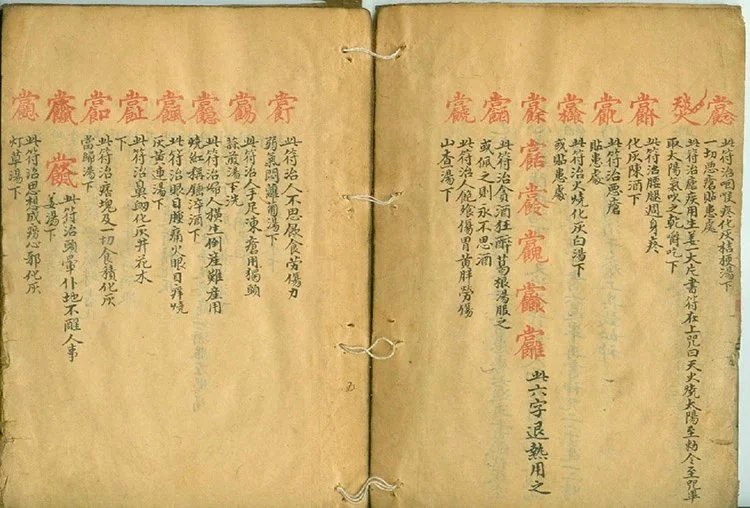 此符治咽喉疼化灰桔梗湯下
一切惡瘡貼患處
此符治瘧疾用生姜一大片書符在上咒曰天火燒太陽至勑令至咒畢
取太陽氣吹之乾嚼吃下
此符治腰腿週身疼
化灰陳酒下
此符治惡瘡
貼患處
此符治火燒化灰白湯下
或貼患處
此六字退熱用之
此符治貪酒狂酔葛根湯服之
或佩之則永不思酒
此符治人飽餐傷胃黃胖勞傷
山查湯下
此符治人不思飲食勞傷力
弱氣悶蘿葡湯下
此符治人手足凍瘡用獨頭
蒜煎湯下洗
此符治婦人橫生倒産難産用
燒紅秤錘淬酒下
此符治眼目腫痛火眼目痒燒
灰黃連湯下
此符治鼻衂化灰井花水
下
此符治痞塊及一切食積化灰
當歸湯下
此符治頭暈仆地不醒人事
姜湯下
此符治思成癆心邪化灰
灯草湯下